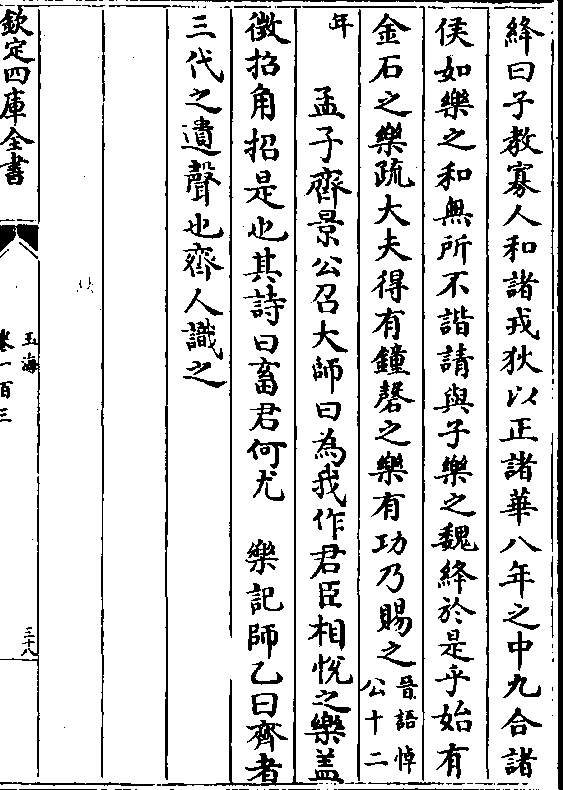 絳曰子教寡人和諸戎狄以正諸華八年之中九合諸
侯如樂之和無所不諧請與子樂之魏絳於是乎始有
金石之樂疏大夫得有鐘磬之樂有功乃賜之晉語悼公十二
年　孟子齊景公召大師曰為我作君臣相悅之樂盖
徵招角招是也其詩曰畜君何尤　樂記師乙曰齊者
三代之遺聲也齊人識之
欽定四庫全書
玉海
卷一百三
三十八